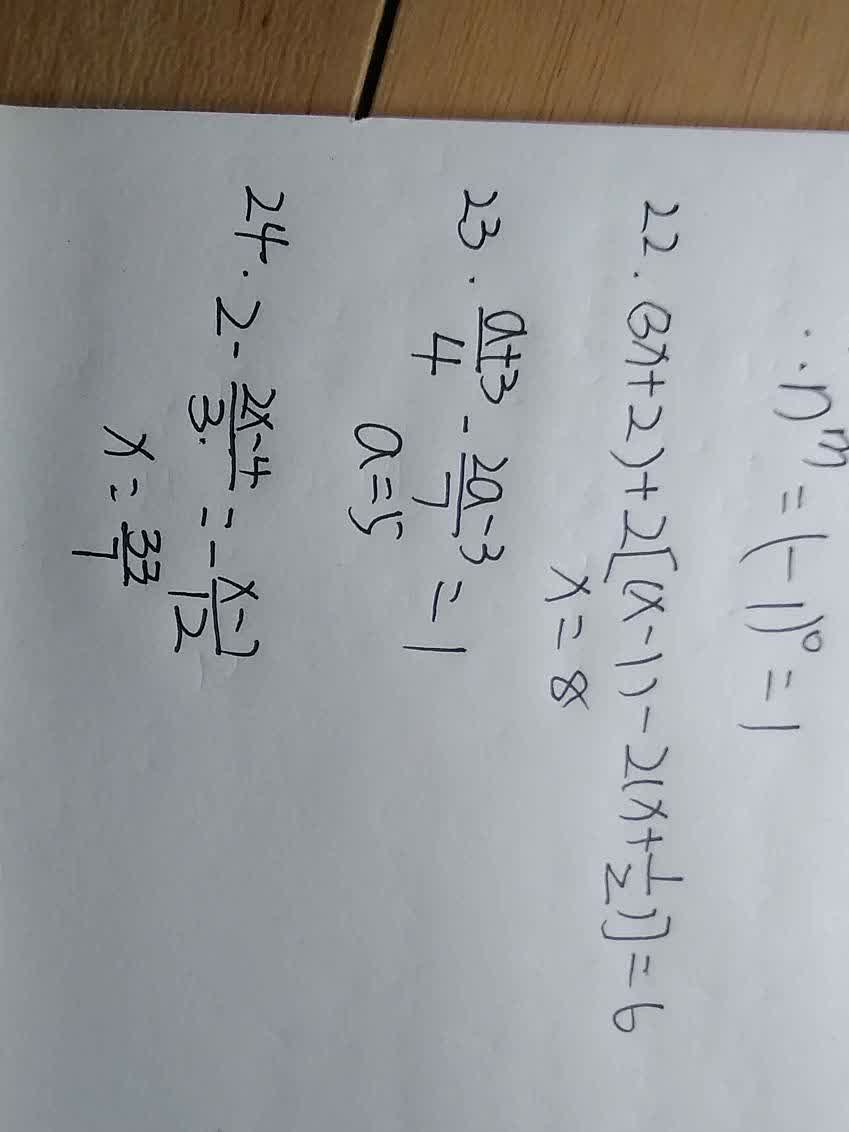 ∴ n^m = (-1)^0 = 1
22. (3x+2)+2[(x-1)-2(x+1/2)]=6
x=8
23. (a+3)/4 - (2a-3)/7 = 1
a=5
24. 2 - (2x-4)/3 = -(x-7)/12
x = 33/7